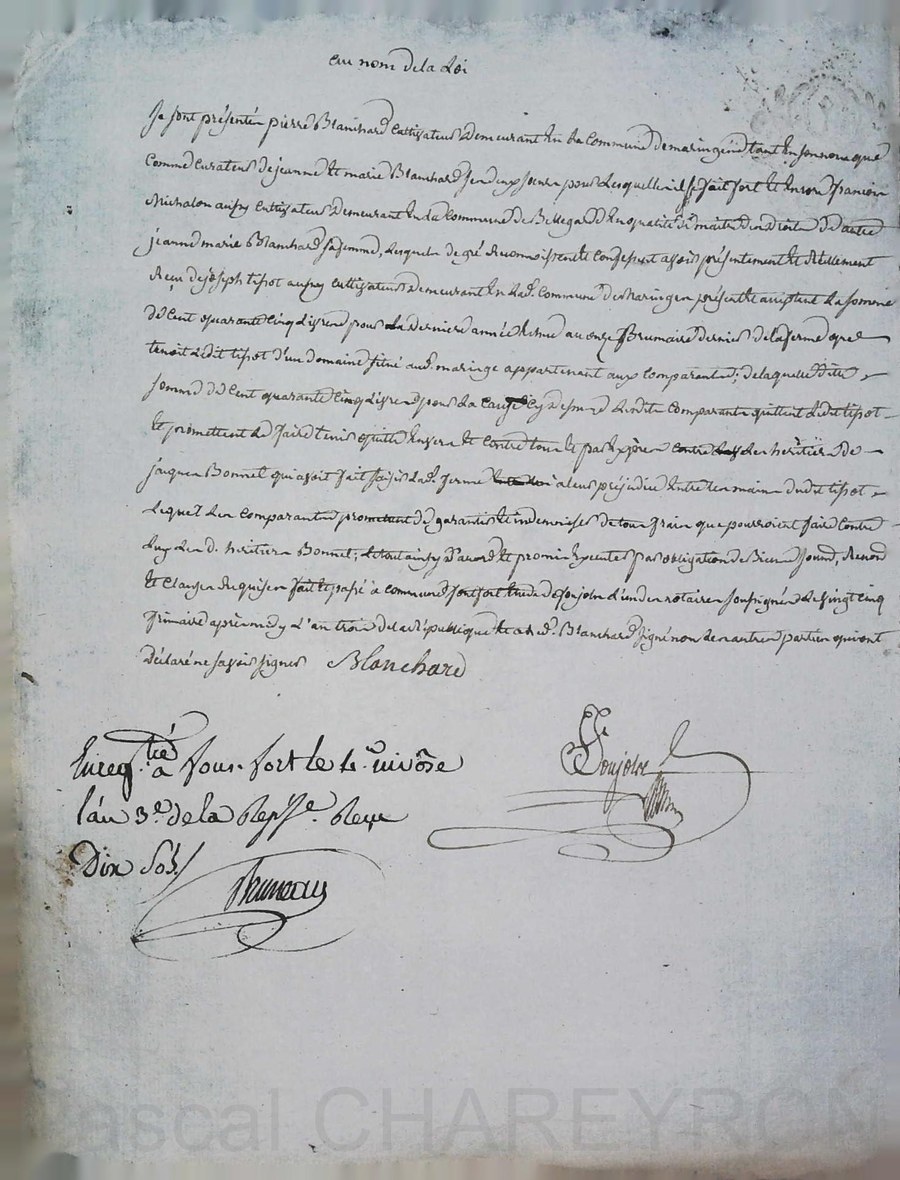 au nom de la Loi
Se sont présentés pierre Blanchard Cultivateur Demeurant En la Commune de maringe tant En son nom que
Comme Curateur de jeanne Et marie Blanchard Ses deux soeurs pour Lesquelles il se fait fort Et Encore francois
Michalon aussy Cultivateur Demeurant En la Commune de Bellegarde En qualité de maitre des droits de autre
jeanne marie Blanchard sa femme, Lesquels de gré Reconnoissent Et Confessent avoir présentement Et Réellement
Reçu de joseph tissot aussy Cultivateur Demeurant En lad. Commune de Maringe présent Et acceptent La somme
De Cent quarante Cinq Livres pour La Derniere année Echue au onze Brumaire dernier de la ferme que
tenoit Ledit tissot d'un domaine situé aud. maringe appartenant aux Comparants, de laquelle dite
somme de Cent quarante Cinq Livres pour La Cause Cy Desus Lesdits Comparants quittent Ledit tissot
Et promettent Le faire tenir quitte Envers Et Contre tous Et par Exprès Contre Les héritiers de
jacques Bonnet qui avoit fait saisir lad. ferme a leur préjudice Entre les mains dudit tissot
Lequel Les Comparants promettent de garantir Et indemniser de tous frais que pourroient faire Contre
Luy Les d. héritiers Bonnet; Le tout ainsy D'acord Et promis Executer par obligation de Biens
Et Clauses Requises fait Et passé à Commune fontfort Etude de Soujolon l'un des notaires Soussignés Le vingt cinq
frimaire après midy L'an trois de la République Et a led. Blanchard Signé non Les autres parties qui ont
Déclaré ne savoir signer Blanchard
Enreg.tré a fons-fort le 1.er nivôse
l'an 3.e de la Rep.que Reçu
Dix Sols
Bruneau
Soujolon
Pascal CHAREYRON